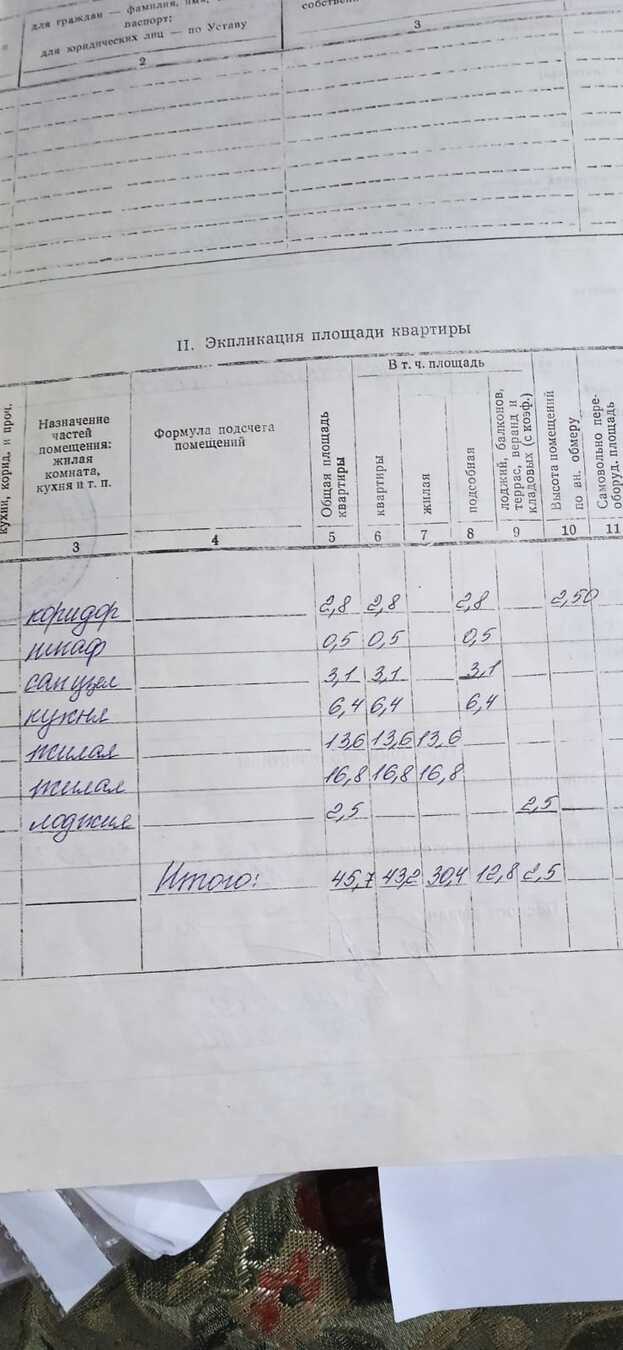 для граждан — фамилия, имя,
паспорт:
для юридических лиц — по Уставу
собствен
2 3
II. Экпликация площади квартиры
кухни, корид. и проч.
Назначение
частей
помещения:
жилая
комната,
кухня и т. п.
Формула подсчета
помещений
Общая площадь
квартиры
В т. ч. площадь
квартиры
жилая
подсобная
лоджий, балконов,
террас, веранд и
кладовых (с коэф.)
Высота помещений
по вн. обмеру
Самовольно пере-
оборуд. площадь
3 4 5 6 7 8 9 10 11
коридор 2,8 2,8 2,8 2,50
шкаф 0,5 0,5 0,5
санузел 3,1 3,1 3,1
кухня 6,4 6,4 6,4
жилая 13,6 13,6 13,6
жилая 16,8 16,8 16,8
лоджия 2,5 2,5
Итого: 45,7 43,2 30,4 12,8 2,5